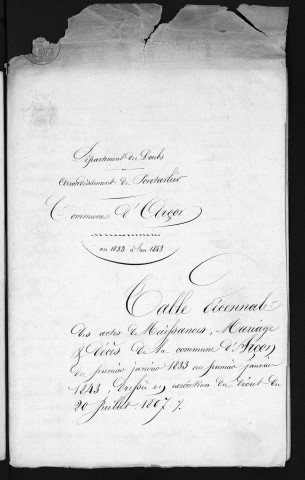 Département du Doubs
Arrondissement de Pontarlier
Commune d'Arçon
an 1833 à l'an 1843
Table décennale
Des actes de Naissances, Mariage
& Décès de la commune d'Arçon
du premier janvier 1833 au premier janvier
1843, dressée en exécution du Décret du
20 Juillet 1807.